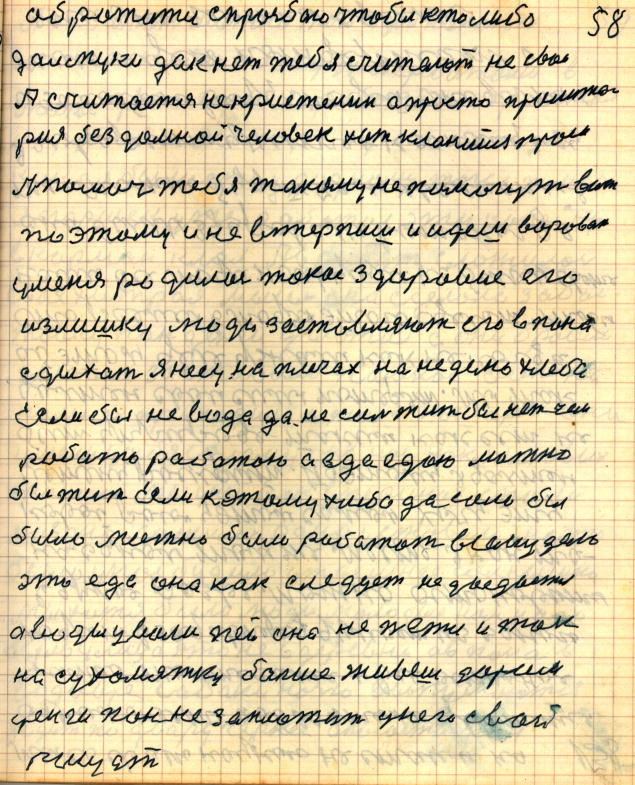 обротити спрозбою чтобы кто либо 58
дал муки дак нет тебя считают не свои
А считается не кристенин а просто пролитар
рия без домной человек хот кланится проси
А помоч тебя такому не помогут вот
поэтому и не втерпиш и идеш воровать
уменя родилос такое здоровие его
излишку люди застовляют его в пана
сдыхат я несу на пличах на неделю хлеба
Если бы не вода да не сил жит бы нет чем
работо работою а еда едою можно
бы жит Если кэтому хлеба да соль бы
было можно было работат всяку дель
это еда она как следует не доедается
а воды ували пей она не жени и так
на сухомятку болше живеш даром
ценги пан не заплотит унего свой
рищует